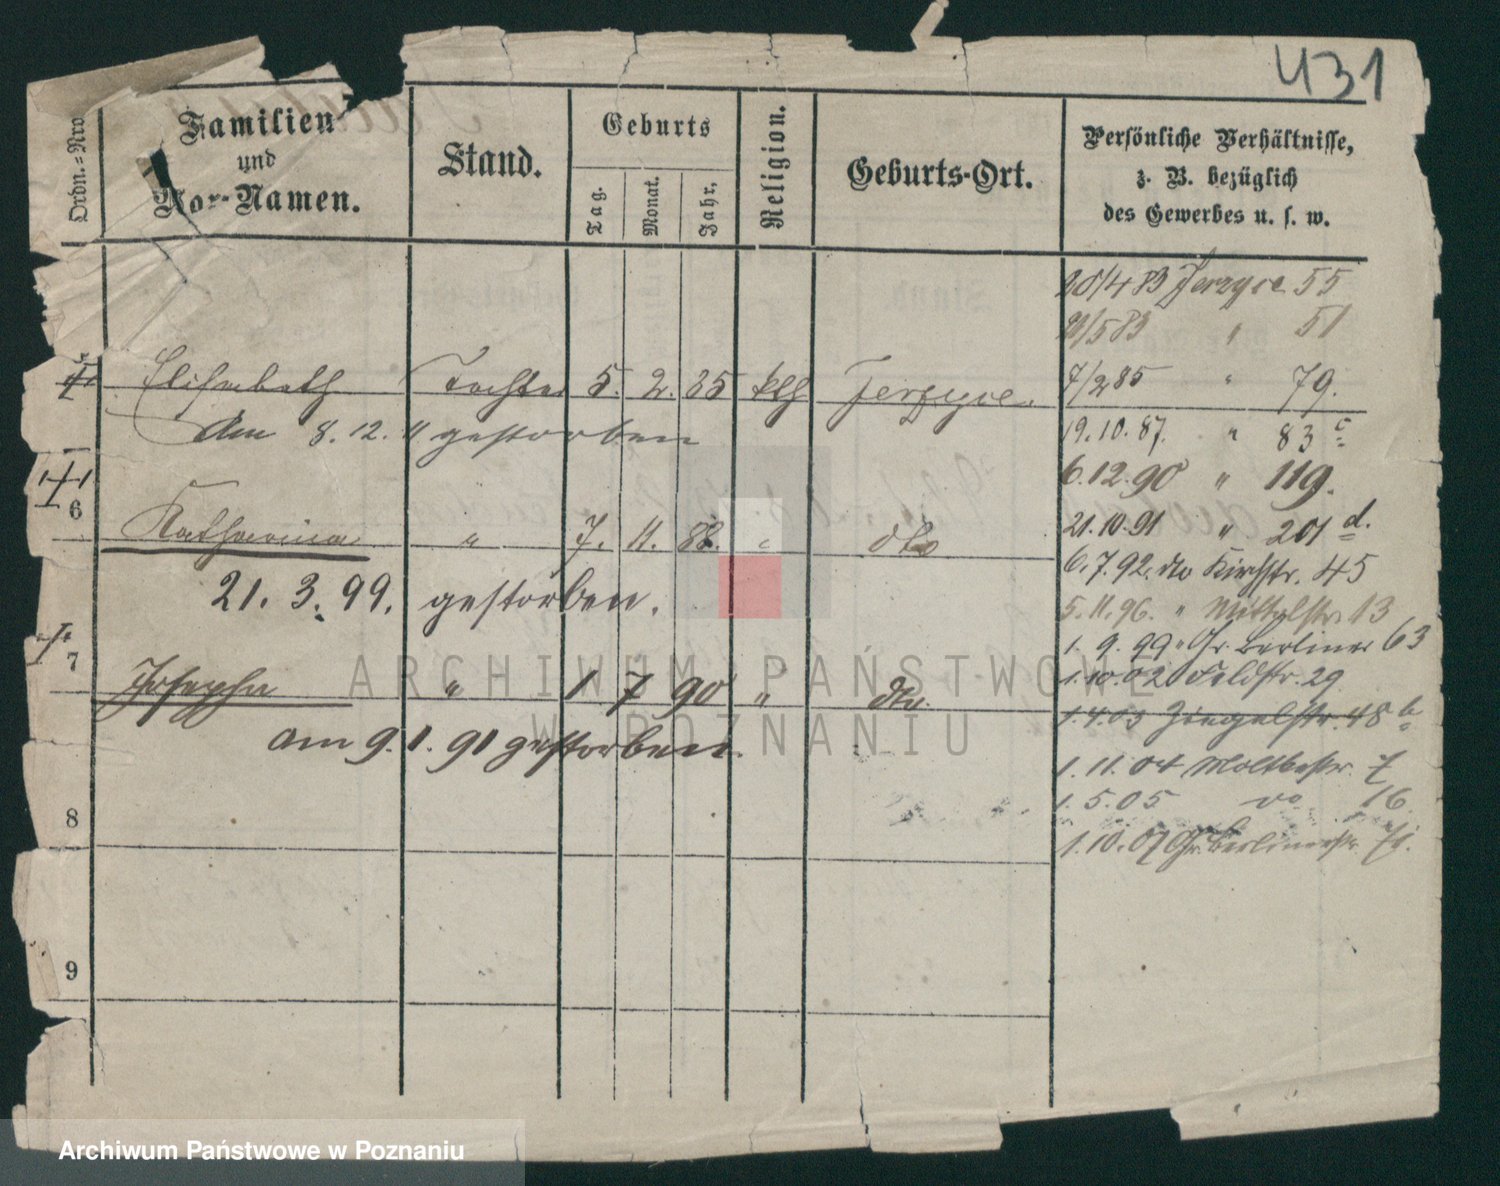 431
Ordn.=Nro
Familien
und
Vor-Namen.
Stand.
Geburts
Tag.
Monat.
Jahr,
Religion.
Geburts-Ort.
Persönliche Verhältnisse,
z. B. bezüglich
des Gewerbes u. s. w.
20/4 83 Jerzyce 55
/5 83 " 51
Elisabeth Tochter 5. 2. 85 klh Jerzyce.
7/2 85 " 79.
Am 8. 12. 11 gestorben
19. 10. 87. " 83 c
6. 12. 90 " 119.
6 Katharina " 7. 11. 88. " dto
21. 10. 91 " 201 d.
6. 7. 92. dto Kirchstr. 45
21. 3. 99. gestorben.
5. 11. 96. " Mittelstr. 13
1. 9. 99 " Gr. Berliner 63
7 Josepha " 1 7 90 " dto.
1. 10. 02 Feldstr. 29
1. 4. 03 Ziegelstr. 48 b
am 9. 1. 91 gestorben.
1. 11. 04 Moltkestr. 7
1. 5. 05 do 16
8
1. 10. 07 Gr. Berlinerstr.
9
ARCHIWUM PAŃSTWOWE
W POZNANIU
Archiwum Państwowe w Poznaniu